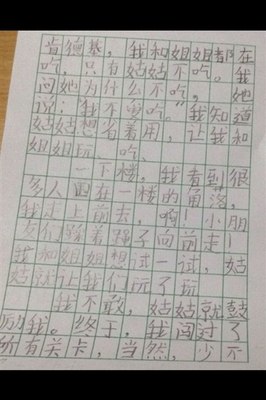 肯德基，我和姐姐都在
吃，只有姑姑不吃。我
问她为什么不吃，她
说：“我不爱吃。”我知道
姑姑想省着用，让我和
姐姐玩、吃。
一下楼，我看到很
多人围在一楼的角落，
我走上前去，啊！小朋
友们骑着蹄子向前走！
我和姐姐想试一试，姑
姑就让我们玩了玩
我不敢，姑姑就鼓
励我。终于，我闯过了
所有关卡，当然，少不